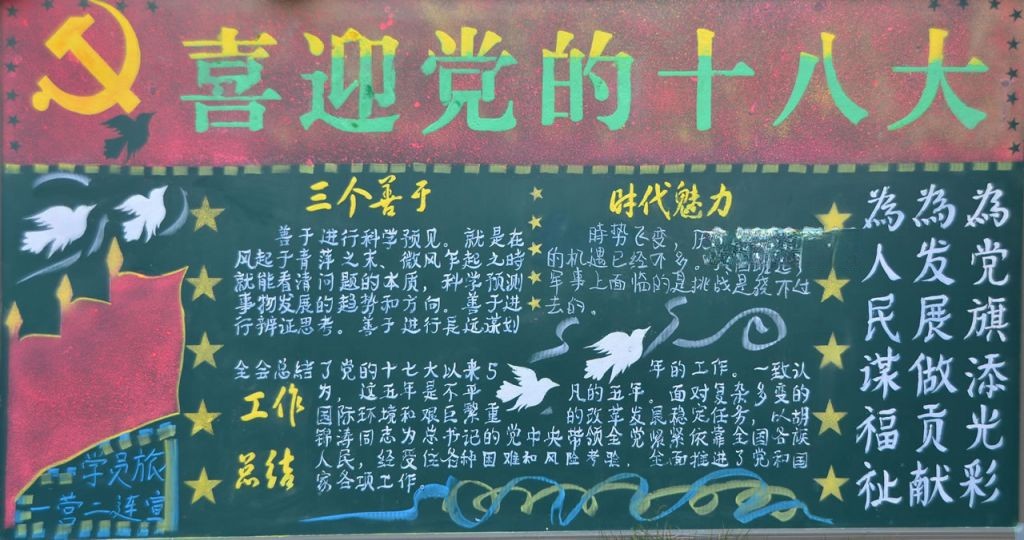 喜迎党的十八大
三个善于
善于进行科学预见。就是在
风起于青萍之末、微风乍起之时
就能看清问题的本质，科学预测
事物发展的趋势和方向。善于进
行辨证思考。善于进行长远谋划
时代魅力
時势飞变，历
的机遇已经不多。
军事上面临的是挑战是
去的。
工作
总结
全会总结了党的十七大以来5年的工作。一致认
为，这五年是不平凡的五年。面对复杂多变的
国际环境和艰巨繁重的改革发展稳定任务，以胡
锦涛同志为总书记的党中央带领全党紧紧依靠全国各族
人民，经受住各种困难和风险考验，全面推进了党和国
家各项工作。
為党旗添光彩
為发展做贡献
為人民谋福祉
学员旅
一营二连宣